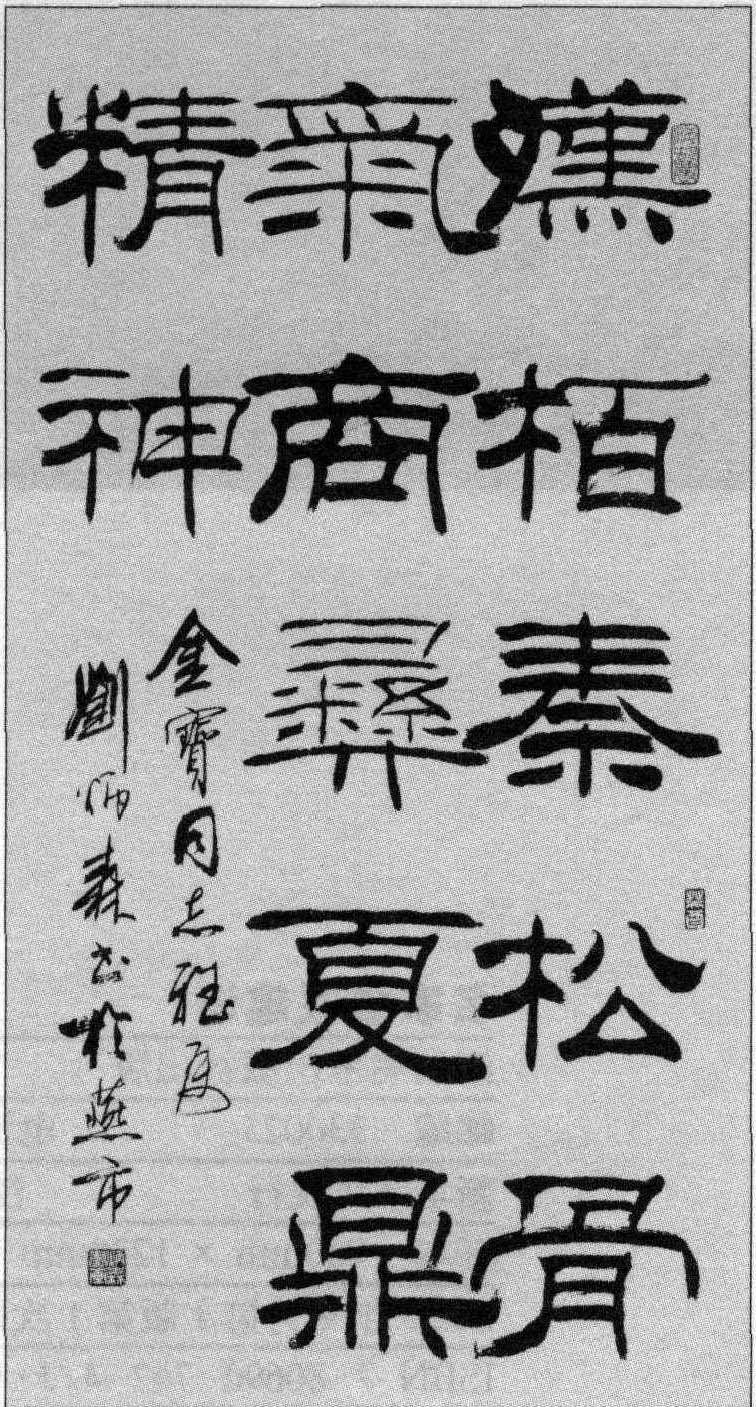 漢柏秦松骨
氣商彝夏鼎
精神
金寶同志雅屬
劉炳森書於燕市